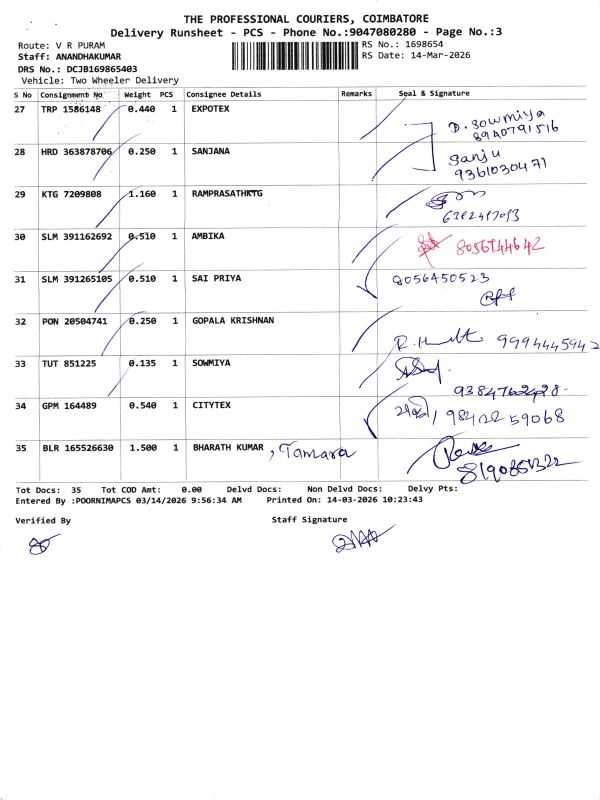 THE PROFESSIONAL COURIERS, COIMBATORE
Delivery Runsheet - PCS - Phone No.:9047080280 - Page No.:3
Route: V R PURAM
RS No.: 1698654
Staff: ANANDHAKUMAR
RS Date: 14-Mar-2026
DRS No.: DCJB169865403
Vehicle: Two Wheeler Delivery
S No Consignment No. Weight PCS Consignee Details Remarks Seal & Signature
27 TRP 1586148 0.440 1 EXPOTEX
D. Sowmiya
8940791516
28 HRD 363878706 0.250 1 SANJANA
Sanju
9361030471
29 KTG 7209808 1.160 1 RAMPRASATHKTG
30 SLM 391162692 0.510 1 AMBIKA
31 SLM 391265105 0.510 1 SAI PRIYA 8056450523
32 PON 20504741 0.250 1 GOPALA KRISHNAN
9994445942
33 TUT 851225 0.135 1 SOWMIYA
34 GPM 164489 0.540 1 CITYTEX 98422 59068
35 BLR 165526630 1.500 1 BHARATH KUMAR , Tamara
Tot Docs: 35 Tot COD Amt: 0.00 Delvd Docs: Non Delvd Docs: Delvy Pts:
Entered By :POORNIMAPCS 03/14/2026 9:56:34 AM Printed On: 14-03-2026 10:23:43
Verified By Staff Signature